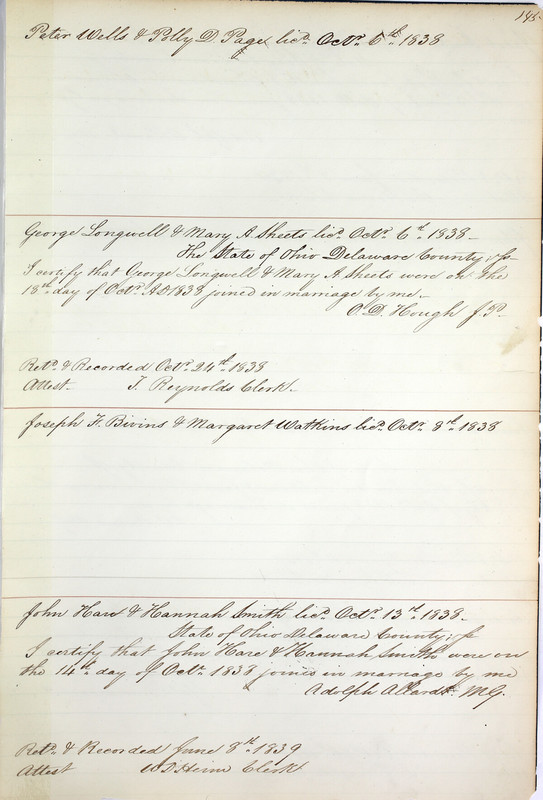 145
Peter Wells & Polly D. Page licd. Octr. 6th. 1838
George Longwell & Mary A Sheets licd. Octr. 6th. 1838
The State of Ohio Delaware County, ss
I certify that George Longwell & Mary A Sheets were on the
18th day of Octr. AD 1838 joined in marriage by me
O. D. Hough J P.
Retd. & Recorded Octr. 24th. 1838
Attest. T. Reynolds Clerk
Joseph F. Bivins & Margaret Watkins licd. Octr. 8th. 1838
John Hare & Hannah Smith licd. Octr. 13th. 1838
State of Ohio Delaware County, ss
I certify that John Hare & Hannah Smith were on
the 14th day of Octr. 1838 joined in marriage by me
Adolph M.G.
Retd. & Recorded June 8th. 1839
Attest Clerk